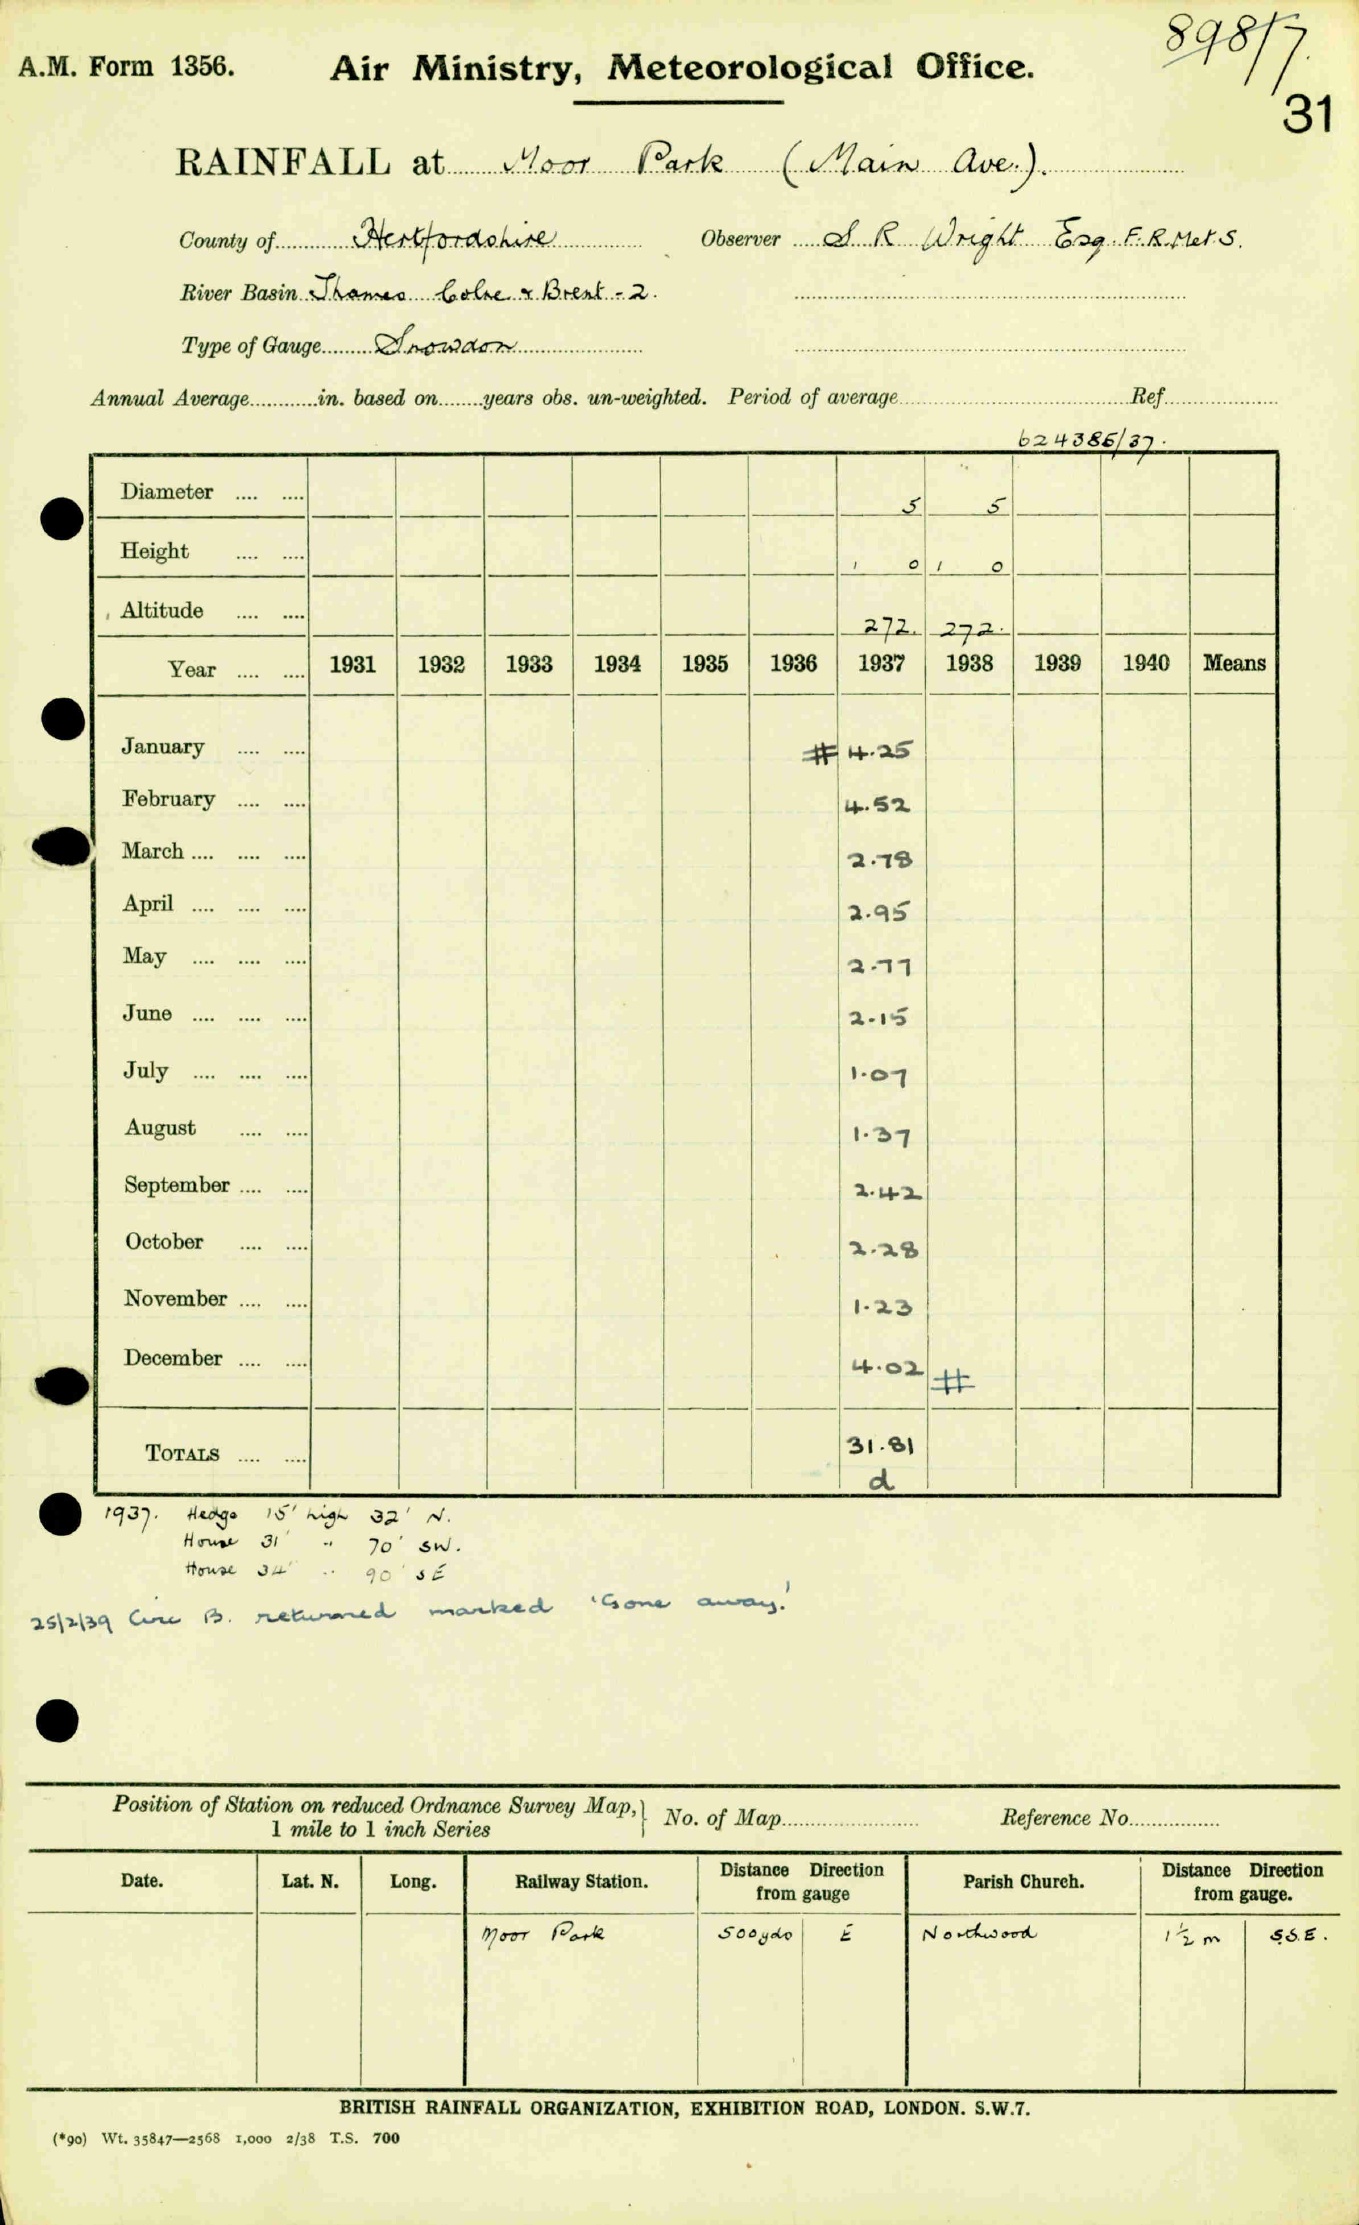 898/7.
A.M. Form 1356. Air Ministry, Meteorological Office.
31
RAINFALL at Moor Park (Main Ave.).
County of Hertfordshire Observer S R Wright Esq. F.R.Met.S.
River Basin Thames Colne & Brent - 2.
Type of Gauge Snowdon
Annual Average............in. based on........years obs. un-weighted. Period of average..............................Ref.................
624386/37.
Diameter .... .... 5 5
Height .... .... 1 0 1 0
Altitude .... .... 272. 272.
Year .... .... 1931 1932 1933 1934 1935 1936 1937 1938 1939 1940 Means
January .... .... # 4.25
February .... .... 4.52
March .... .... .... 2.78
April .... .... .... 2.95
May .... .... .... 2.77
June .... .... .... 2.15
July .... .... .... 1.07
August .... .... 1.37
September .... .... 2.42
October .... .... 2.28
November .... .... 1.23
December .... .... 4.02 #
TOTALS .... .... 31.81
d
1937. Hedge 15' high 32' N.
House 31' " 70' SW.
House 34' " 90' SE
25/2/39 Circ B. returned marked 'Gone away!'
Position of Station on reduced Ordnance Survey Map, } No. of Map........................ Reference No................
1 mile to 1 inch Series
Date. Lat. N. Long. Railway Station. Distance Direction from gauge Parish Church. Distance Direction from gauge.
Moor Park 500yds E Northwood 1½ m S.S.E.
BRITISH RAINFALL ORGANIZATION, EXHIBITION ROAD, LONDON. S.W.7.
(*90) Wt. 35847—2568 1,000 2/38 T.S. 700